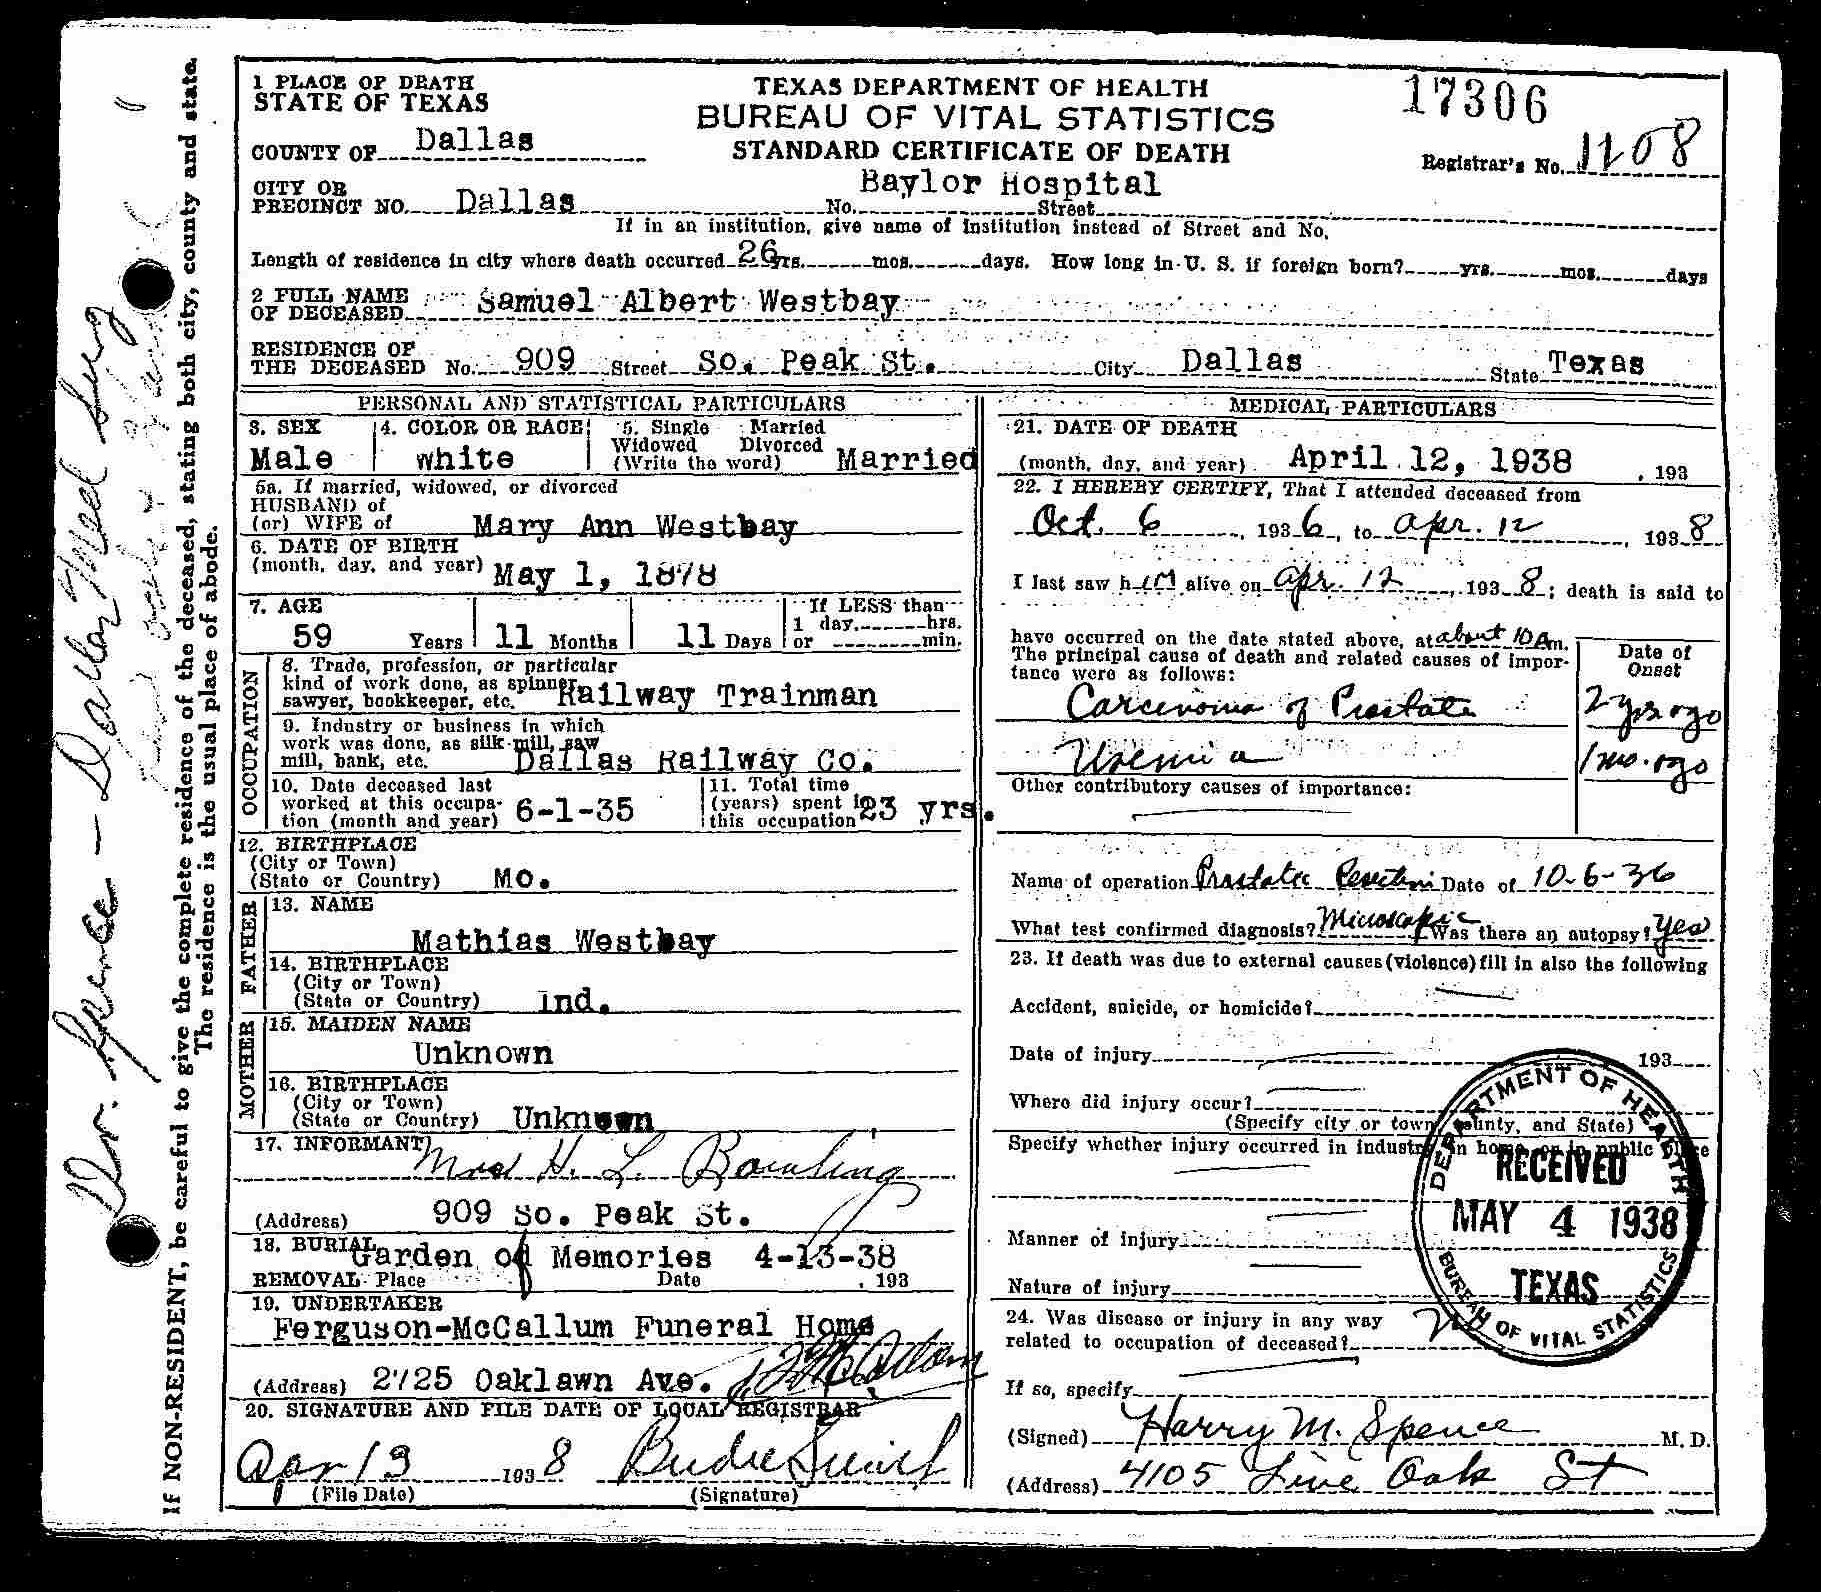 1 PLACE OF DEATH
STATE OF TEXAS
COUNTY OF Dallas
CITY OR
PRECINCT NO. Dallas
TEXAS DEPARTMENT OF HEALTH
BUREAU OF VITAL STATISTICS
STANDARD CERTIFICATE OF DEATH
17306
Registrar's No. 1108
Baylor Hospital
No. Street
If in an institution, give name of Institution instead of Street and No.
Length of residence in city where death occurred 26 yrs. mos. days. How long in U. S. if foreign born? yrs. mos. days
2 FULL NAME
OF DECEASED Samuel Albert Westbay
RESIDENCE OF
THE DECEASED No. 909 Street So. Peak St. City Dallas State Texas
PERSONAL AND STATISTICAL PARTICULARS
3. SEX
Male
4. COLOR OR RACE
White
5. Single Married
Widowed Divorced
(Write the word) Married
5a. If married, widowed, or divorced
HUSBAND of
(or) WIFE of Mary Ann Westbay
6. DATE OF BIRTH
(month, day, and year) May 1, 1878
7. AGE
59 Years 11 Months 11 Days
If LESS than
1 day, hrs.
or min.
OCCUPATION
8. Trade, profession, or particular
kind of work done, as spinner,
sawyer, bookkeeper, etc. Railway Trainman
9. Industry or business in which
work was done, as silk mill, saw
mill, bank, etc. Dallas Railway Co.
10. Date deceased last
worked at this occupa-
tion (month and year) 6-1-35
11. Total time
(years) spent in
this occupation 23 yrs.
12. BIRTHPLACE
(City or Town)
(State or Country) Mo.
FATHER
13. NAME
Mathias Westbay
14. BIRTHPLACE
(City or Town)
(State or Country) Ind.
MOTHER
15. MAIDEN NAME
Unknown
16. BIRTHPLACE
(City or Town)
(State or Country) Unknown
17. INFORMANT Mrs H. L. Bowling
(Address) 909 So. Peak St.
18. BURIAL Garden of Memories 4-13-38
REMOVAL Place Date , 193
19. UNDERTAKER
Ferguson-McCallum Funeral Home
(Address) 2725 Oaklawn Ave.
20. SIGNATURE AND FILE DATE OF LOCAL REGISTRAR
Apr 13 1938
(File Date) (Signature)
MEDICAL PARTICULARS
21. DATE OF DEATH
(month, day, and year) April 12, 1938 , 193
22. I HEREBY CERTIFY, That I attended deceased from
Oct. 6, 1936, to Apr. 12, 1938
I last saw him alive on Apr. 12, 1938; death is said to
have occurred on the date stated above, at about 10 Am.
The principal cause of death and related causes of impor-
tance were as follows:
Date of
Onset
Carcinoma of Prostate 2 yrs ago
Uremia 1 mo. ago
Other contributory causes of importance:
Name of operation Prostatic Resection Date of 10-6-36
What test confirmed diagnosis? Microscopic Was there an autopsy? Yes
23. If death was due to external causes (violence) fill in also the following
Accident, suicide, or homicide?
Date of injury 193
Where did injury occur?
(Specify city or town, county, and State)
Specify whether injury occurred in industry, in home, or in public place
Manner of injury
Nature of injury
24. Was disease or injury in any way
related to occupation of deceased?
If so, specify
(Signed) Harry M. Spence M. D.
(Address) 4105 Live Oak St
DEPARTMENT OF HEALTH
RECEIVED
MAY 4 1938
TEXAS
BUREAU OF VITAL STATISTICS
If NON-RESIDENT, be careful to give the complete residence of the deceased, stating both city, county and state.
The residence is the usual place of abode.
Dr. Spence — Dallas Med